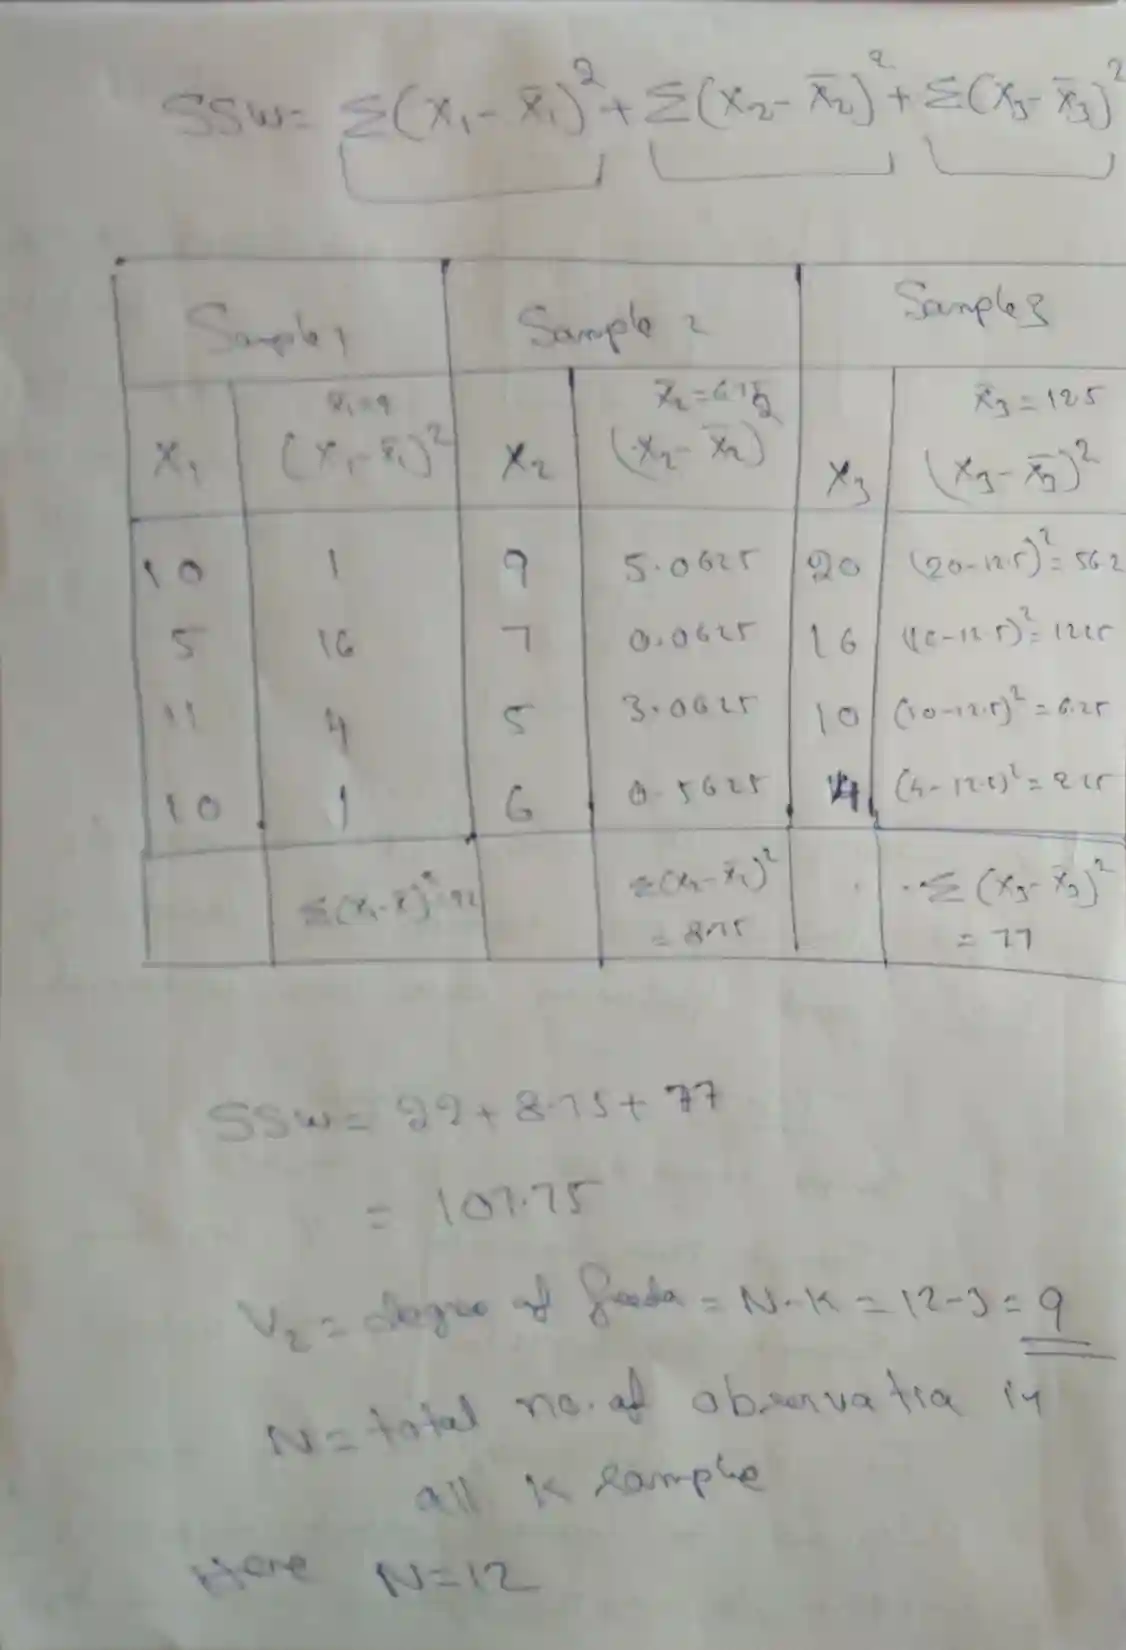 SSW= Σ(x₁-x̄₁)²+Σ(x₂-x̄₂)²+Σ(x₃-x̄₃)²
Sample 1 Sample 2 Sample 3
x̄₁=9 x̄₃=125
x₁ (x₁-x̄₁)² x₂ (x₂-x̄₂)² x₃ (x₃-x̄₃)²
10 1 9 5.0625 20 (20-12.5)²=562
5 16 7 0.0625 16
11 4 5 3.0625 10 (10-12.5)²=6.25
10 1 6 0.5625 4
Σ(x₂-x̄₂)² Σ(x₃-x̄₃)²
= 8.75 = 77
SSW= 22+8.75+77
= 107.75
V₂= degree of = N-K=12-3=9
N=total no. of observation in
all K sample
Here N=12